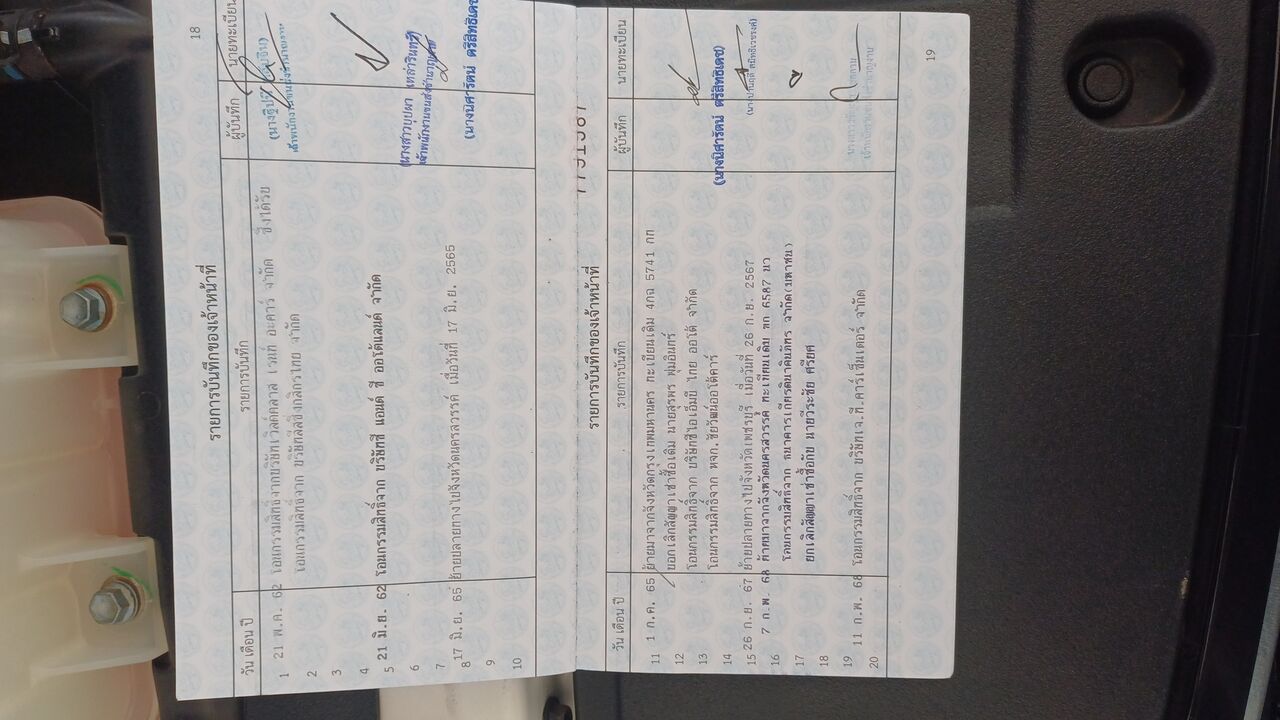 18
รายการบันทึกของเจ้าหน้าที่
วัน เดือน ปี รายการบันทึก ผู้บันทึก นายทะเบียน
1 21 พ.ค. 62 โอนกรรมสิทธิ์จากบริษัทเวิลด์คลาส เรนท์ อะคาร์ จำกัด ซึ่งได้รับ
2 โอนกรรมสิทธิ์จาก บริษัทลีสซิ่งกสิกรไทย จำกัด
เจ้าพนักงานขนส่งชำนาญงาน
3
4
5 21 มิ.ย. 62 โอนกรรมสิทธิ์จาก บริษัทซี แอนด์ ซี ออโต้แลนด์ จำกัด
6 (นางสาวบุยผา เหล่ารินทร์)
7 เจ้าพนักงานขนส่งชำนาญงาน
8 17 มิ.ย. 65 ย้ายปลายทางไปจังหวัดนครสวรรค์ เมื่อวันที่ 17 มิ.ย. 2565
(นางนิศารัตน์ ตรีสิทธิเดช)
9
10
รายการบันทึกของเจ้าหน้าที่
วัน เดือน ปี รายการบันทึก ผู้บันทึก นายทะเบียน
11 1 ก.ค. 65 ย้ายมาจากจังหวัดกรุงเทพมหานคร ทะเบียนเดิม 4กฉ 5741 กท
12 บอกเลิกสัญญาเช่าซื้อเดิม นายสุรพร พุ่มอินทร์
13 โอนกรรมสิทธิ์จาก บริษัทซีไอเอ็มบี ไทย ออโต้ จำกัด
14 โอนกรรมสิทธิ์จาก หจก.ชัยวัฒน์ออโต้คาร์ (นางนิศารัตน์ ตรีสิทธิเดช)
15 26 ก.ย. 67 ย้ายปลายทางไปจังหวัดเพชรบุรี เมื่อวันที่ 26 ก.ย. 2567
16 7 ก.พ. 68 ย้ายมาจากจังหวัดนครสวรรค์ ทะเบียนเดิม ขก 6587 นว
17 โอนกรรมสิทธิ์จาก ธนาคารเกียรตินาคินภัทร จำกัด(มหาชน)
18 ยกเลิกสัญญาเช่าซื้อกับ นายวีระชัย ศรียศ
19 11 ก.พ. 68 โอนกรรมสิทธิ์จาก บริษัทเจ.ที.คาร์เซ็นเตอร์ จำกัด
20
19